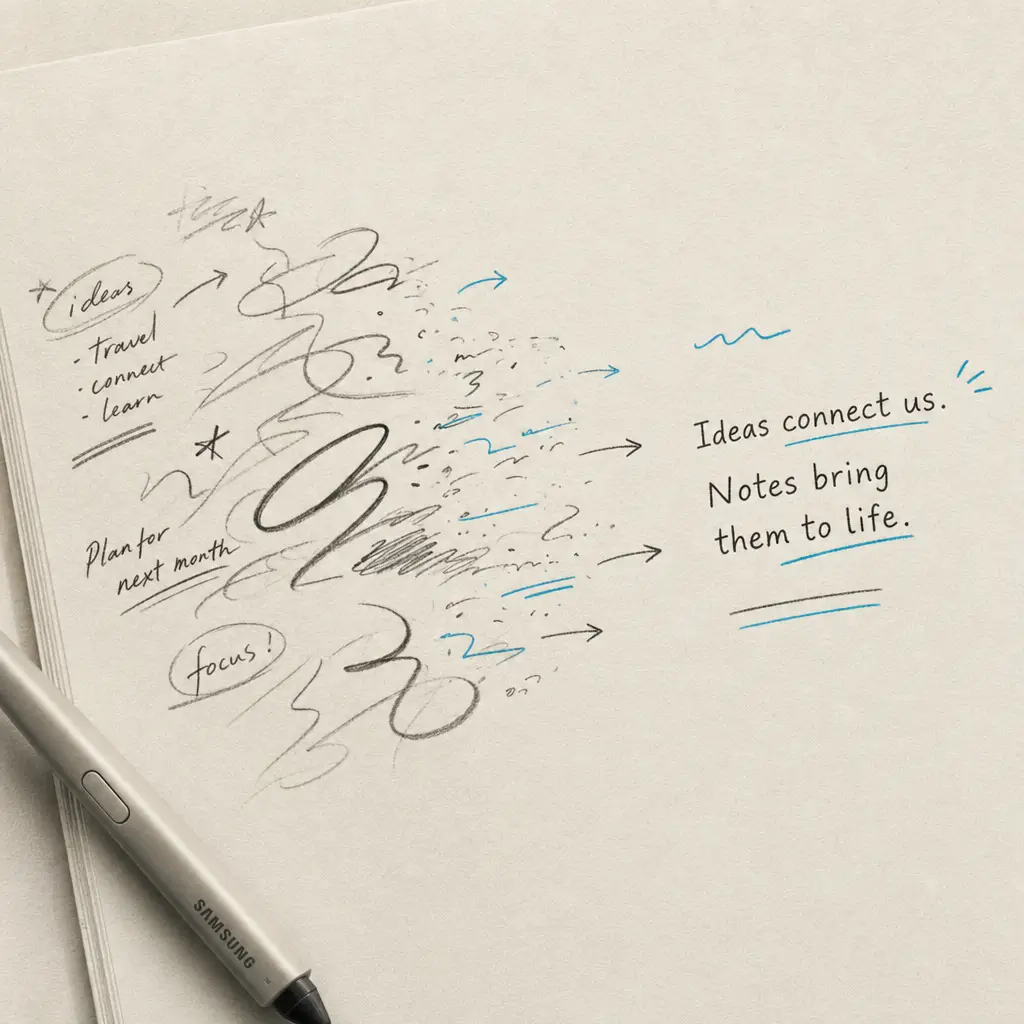 ideas
· Travel
· connect
- learn
Plan for
next month
focus!
Ideas connect us.
Notes bring
them to life.
SAMSUNG